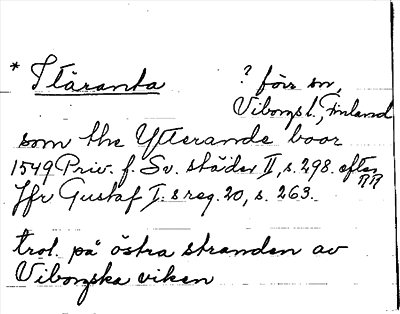 * Ytäranta
? förr sn,
Viborgs l., Finland
som the Ytterande boor
1549 Priv. f. Sv. städer II, s. 298. efter RA
Jfr Gustaf I:s reg. 20, s. 263.
trol. på östra stranden av
Viborgska viken